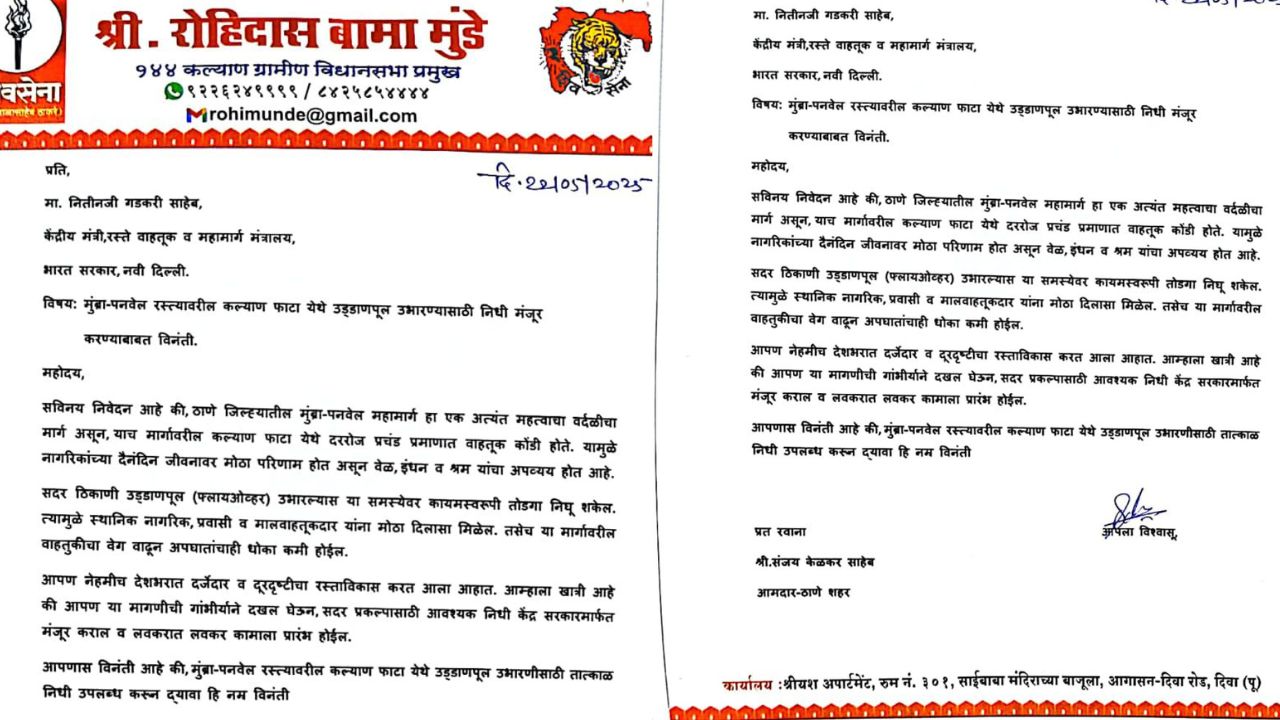 वसेना
श्री. रोहिदास बामा मुंडे
१४४ कल्याण ग्रामीण विधानसभा प्रमुख
९२२६२४९९९९ / ८४२५८५४४४४
rohimunde@gmail.com
सेना
प्रति,
दि. 22/05/2025
मा. नितीनजी गडकरी साहेब,
केंद्रीय मंत्री,रस्ते वाहतूक व महामार्ग मंत्रालय,
भारत सरकार, नवी दिल्ली.
विषय: मुंब्रा-पनवेल रस्त्यावरील कल्याण फाटा येथे उड्डाणपूल उभारण्यासाठी निधी मंजूर
करण्याबाबत विनंती.
महोदय,
सविनय निवेदन आहे की, ठाणे जिल्ह्यातील मुंब्रा-पनवेल महामार्ग हा एक अत्यंत महत्वाचा वर्दळीचा
मार्ग असून, याच मार्गावरील कल्याण फाटा येथे दररोज प्रचंड प्रमाणात वाहतूक कोंडी होते. यामुळे
नागरिकांच्या दैनंदिन जीवनावर मोठा परिणाम होत असून वेळ, इंधन व श्रम यांचा अपव्यय होत आहे.
सदर ठिकाणी उड्डाणपूल (फ्लायओव्हर) उभारल्यास या समस्येवर कायमस्वरूपी तोडगा निघू शकेल.
त्यामुळे स्थानिक नागरिक, प्रवासी व मालवाहतूकदार यांना मोठा दिलासा मिळेल. तसेच या मार्गावरील
वाहतुकीचा वेग वाढून अपघातांचाही धोका कमी होईल.
आपण नेहमीच देशभरात दर्जेदार व दूरदृष्टीचा रस्ताविकास करत आला आहात. आम्हाला खात्री आहे
की आपण या मागणीची गांभीर्याने दखल घेऊन, सदर प्रकल्पासाठी आवश्यक निधी केंद्र सरकारमार्फत
मंजूर कराल व लवकरात लवकर कामाला प्रारंभ होईल.
आपणास विनंती आहे की, मुंब्रा-पनवेल रस्त्यावरील कल्याण फाटा येथे उड्डाणपूल उभारणीसाठी तात्काळ
निधी उपलब्ध करून द्यावा हि नम विनंती
मा. नितीनजी गडकरी साहेब,
केंद्रीय मंत्री,रस्ते वाहतूक व महामार्ग मंत्रालय,
भारत सरकार, नवी दिल्ली.
विषय: मुंब्रा-पनवेल रस्त्यावरील कल्याण फाटा येथे उड्डाणपूल उभारण्यासाठी निधी मंजूर
करण्याबाबत विनंती.
महोदय,
सविनय निवेदन आहे की, ठाणे जिल्ह्यातील मुंब्रा-पनवेल महामार्ग हा एक अत्यंत महत्वाचा वर्दळीचा
मार्ग असून, याच मार्गावरील कल्याण फाटा येथे दररोज प्रचंड प्रमाणात वाहतूक कोंडी होते. यामुळे
नागरिकांच्या दैनंदिन जीवनावर मोठा परिणाम होत असून वेळ, इंधन व श्रम यांचा अपव्यय होत आहे.
सदर ठिकाणी उड्डाणपूल (फ्लायओव्हर) उभारल्यास या समस्येवर कायमस्वरूपी तोडगा निघू शकेल.
त्यामुळे स्थानिक नागरिक, प्रवासी व मालवाहतूकदार यांना मोठा दिलासा मिळेल. तसेच या मार्गावरील
वाहतुकीचा वेग वाढून अपघातांचाही धोका कमी होईल.
आपण नेहमीच देशभरात दर्जेदार व दूरदृष्टीचा रस्ताविकास करत आला आहात. आम्हाला खात्री आहे
की आपण या मागणीची गांभीर्याने दखल घेऊन, सदर प्रकल्पासाठी आवश्यक निधी केंद्र सरकारमार्फत
मंजूर कराल व लवकरात लवकर कामाला प्रारंभ होईल.
आपणास विनंती आहे की, मुंब्रा-पनवेल रस्त्यावरील कल्याण फाटा येथे उड्डाणपूल उभारणीसाठी तात्काळ
निधी उपलब्ध करून द्यावा हि नम विनंती
आपला विश्वासू,
प्रत रवाना
श्री.संजय केळकर साहेब
आमदार-ठाणे शहर
कार्यालय :श्रीयश अपार्टमेंट, रुम नं. ३०१, साईबाबा मंदिराच्या बाजूला, आगासन-दिवा रोड, दिवा (पू)